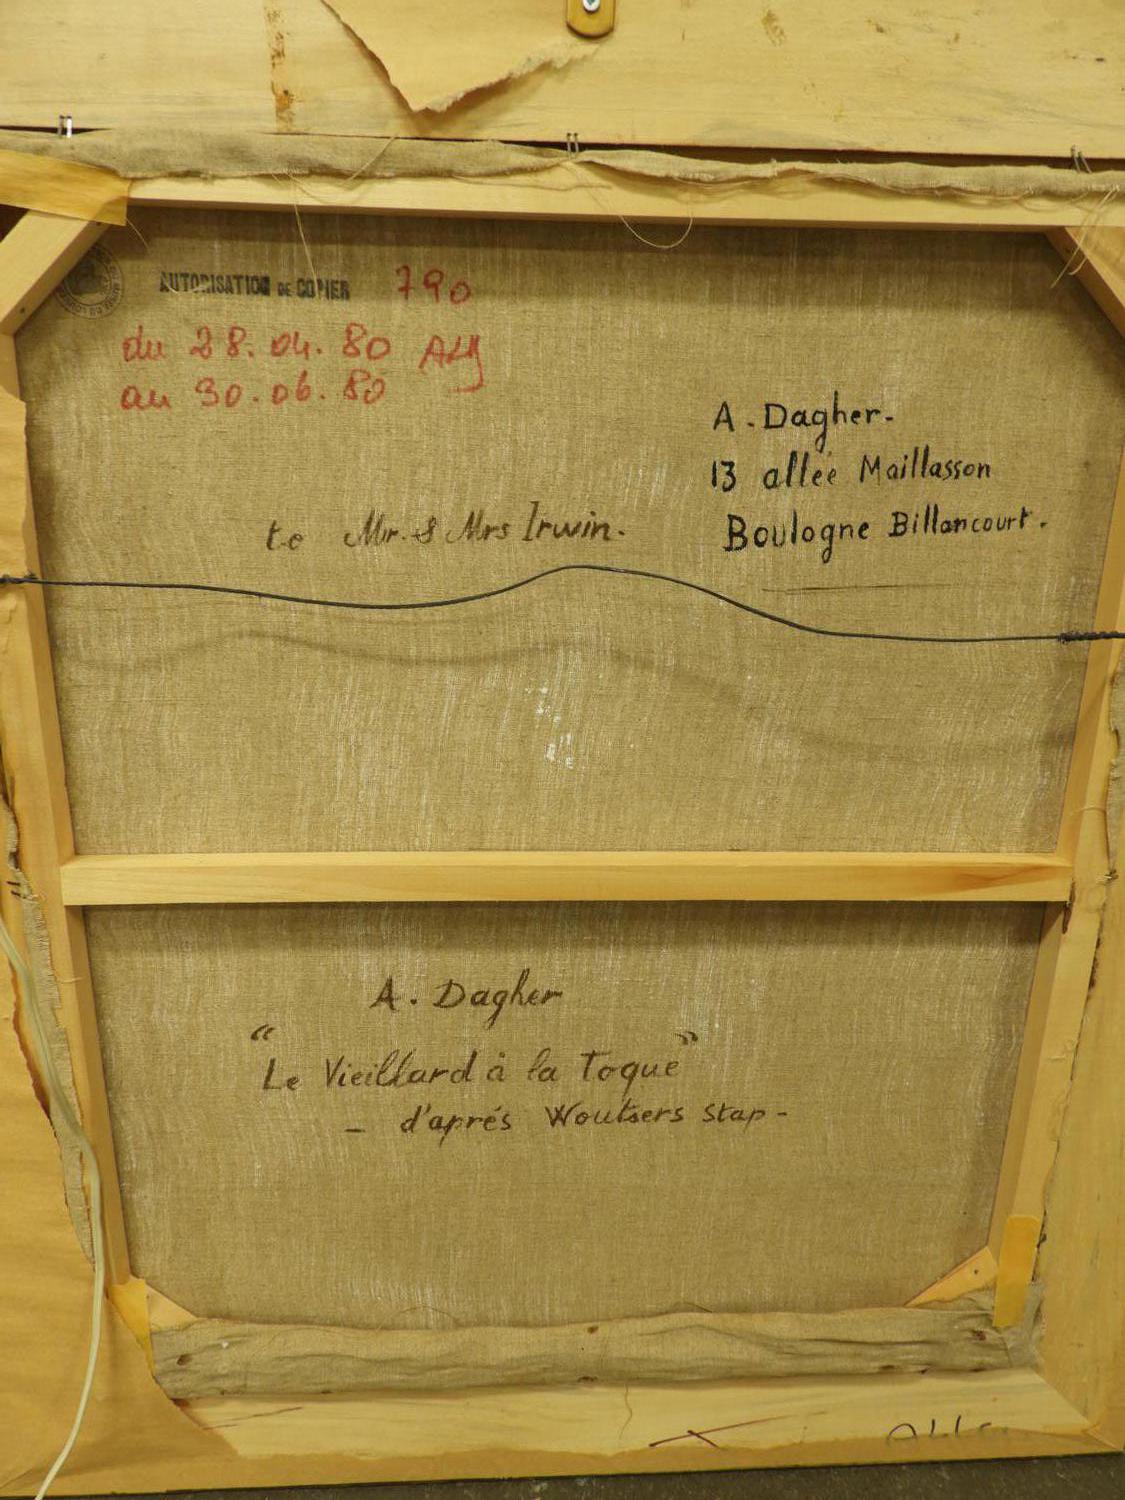 AUTORISATION DE COPIER 790
du 28.04.80
au 30.06.80
A. Dagher.
13 alleé Maillasson
Boulogne Billancourt.
to Mr. & Mrs Irwin.
A. Dagher
“Le Vieillard à la Toque”
- d'aprés Woutsers Stap -